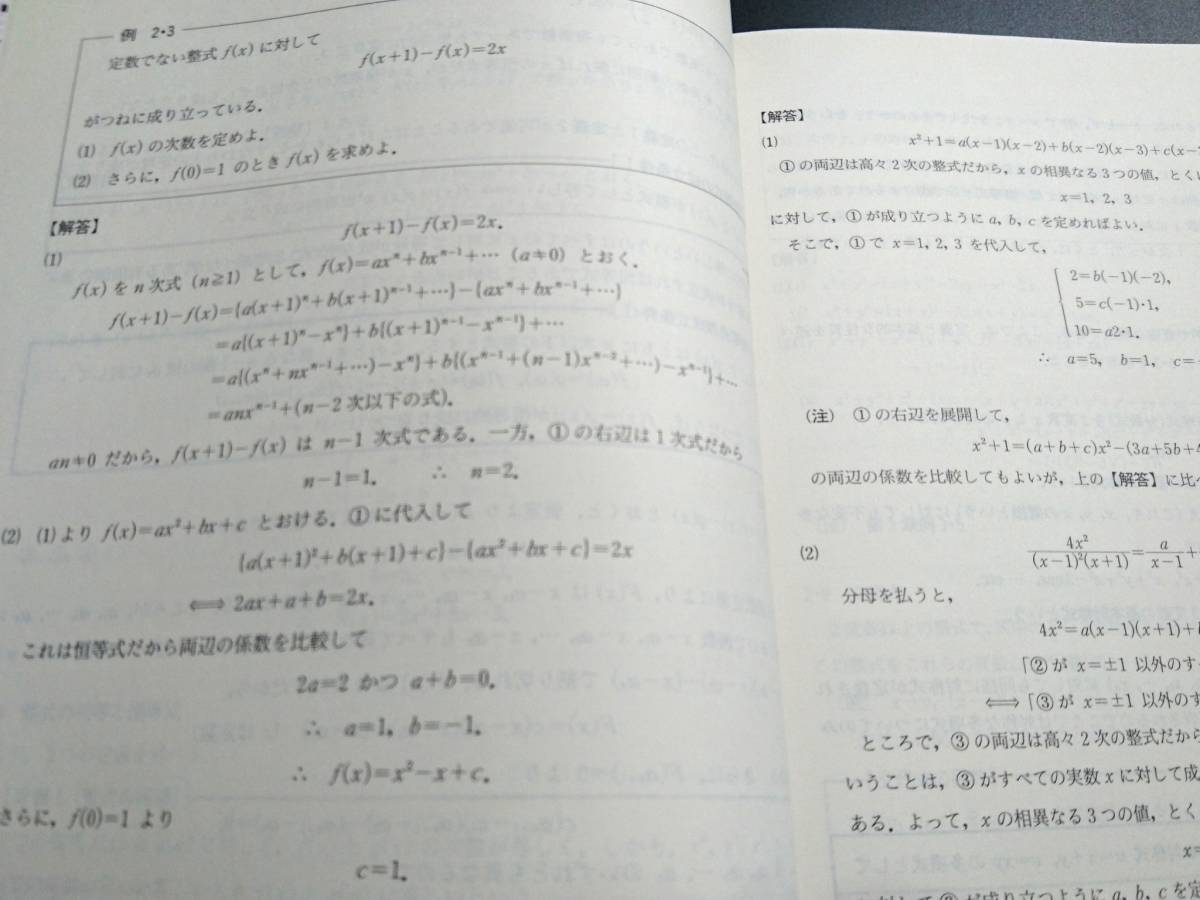 例 2・3
定数でない整式 f(x) に対して
f(x+1)−f(x)=2x
がつねに成り立っている．
(1) f(x) の次数を定めよ．
(2) さらに，f(0)=1 のとき f(x) を求めよ．
【解答】
f(x+1)−f(x)=2x.
(1)
f(x) を n 次式 (n≧1) として，f(x)=axⁿ+bxⁿ⁻¹+… (a≠0) とおく．
f(x+1)−f(x)={a(x+1)ⁿ+b(x+1)ⁿ⁻¹+…}−{axⁿ+bxⁿ⁻¹+…}
=a{(x+1)ⁿ−xⁿ}+b{(x+1)ⁿ⁻¹−xⁿ⁻¹}+…
=a{(xⁿ+nxⁿ⁻¹+…)−xⁿ}+b{(xⁿ⁻¹+(n−1)xⁿ⁻²+…)−xⁿ⁻¹}+…
=anxⁿ⁻¹+(n−2 次以下の式).
an≠0 だから，f(x+1)−f(x) は n−1 次式である．一方，①の右辺は 1 次式だから
n−1=1. ∴ n=2.
(2) (1)より f(x)=ax²+bx+c とおける．①に代入して
{a(x+1)²+b(x+1)+c}−{ax²+bx+c}=2x
⟺ 2ax+a+b=2x.
これは恒等式だから両辺の係数を比較して
2a=2 かつ a+b=0.
∴ a=1, b=−1.
∴ f(x)=x²−x+c.
さらに，f(0)=1 より
c=1.
【解答】
(1) x²+1=a(x−1)(x−2)+b(x−2)(x−3)+c(x−
①の両辺は高々2次の整式だから，x の相異なる3つの値，とくに
x=1, 2, 3
に対して，①が成り立つように a, b, c を定めればよい．
そこで，①で x=1, 2, 3 を代入して，
2=b(−1)(−2),
5=c(−1)・1,
10=a2・1.
∴ a=5, b=1, c=−
(注) ①の右辺を展開して，
x²+1=(a+b+c)x²−(3a+5b+4
の両辺の係数を比較してもよいが，上の【解答】に比べ
(2) 4x²/(x−1)²(x+1)=a/x−1+
分母を払うと，
4x²=a(x−1)(x+1)+b
「②が x=±1 以外のす
⟺「③が x=±1 以外のす
ところで，③の両辺は高々2次の整式だから
いうことは，③がすべての実数 x に対して成
ある．よって，x の相異なる3つの値，とく
x=
a, b, c を定